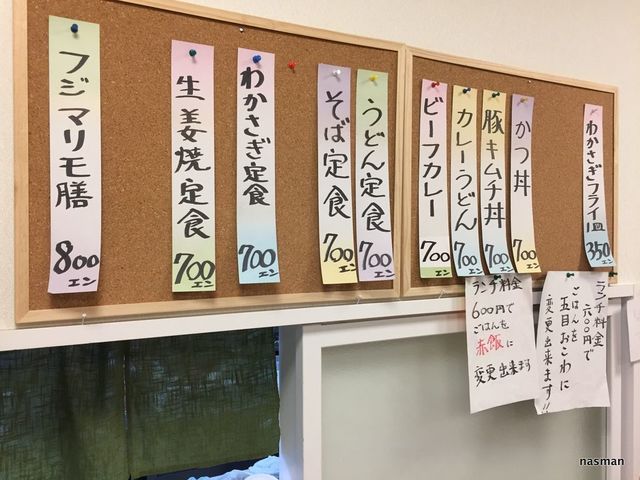 フジマリモ膳
800
エン
生姜焼定食
700
エン
わかさぎ定食
700
エン
そば定食
700
エン
うどん定食
700
エン
ビーフカレー
700
エン
カレーうどん
700
エン
豚キムチ丼
700
エン
かつ丼
700
エン
わかさぎフライ皿
350
エン
ランチ料金
600円で
ごはんを
赤飯に
変更出来ます
ランチ料金
六〇〇円で
ごはんを
五目おこわに
変更出来ます!!
nasman